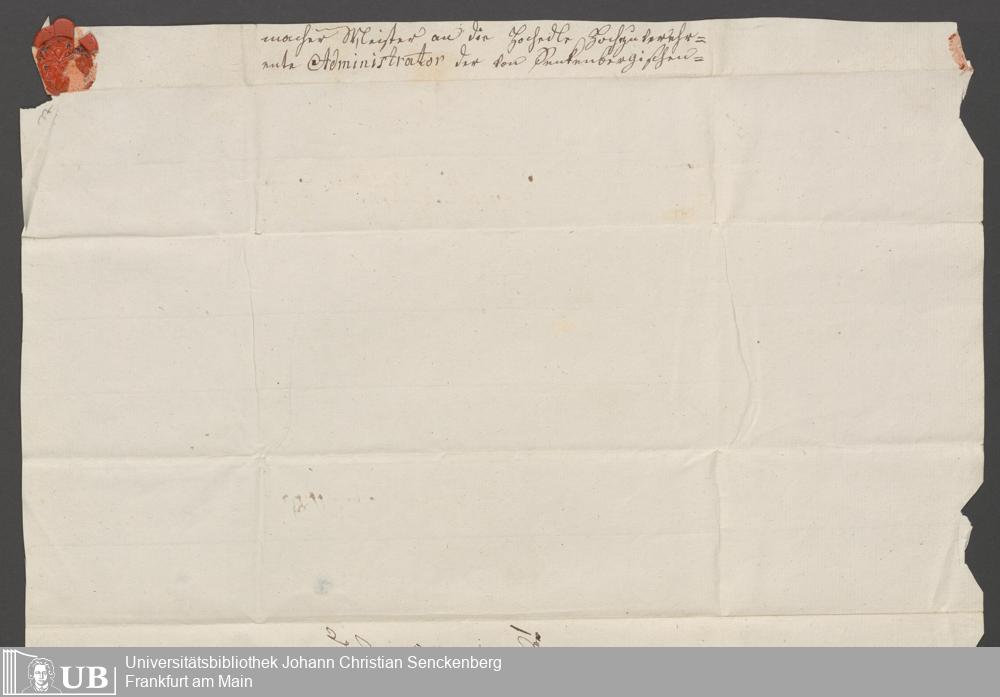 macher Meister an die Hochedle Hochzuverehr=
ente Administrator der von Senkenbergischen=
UB
Universitätsbibliothek Johann Christian Senckenberg
Frankfurt am Main